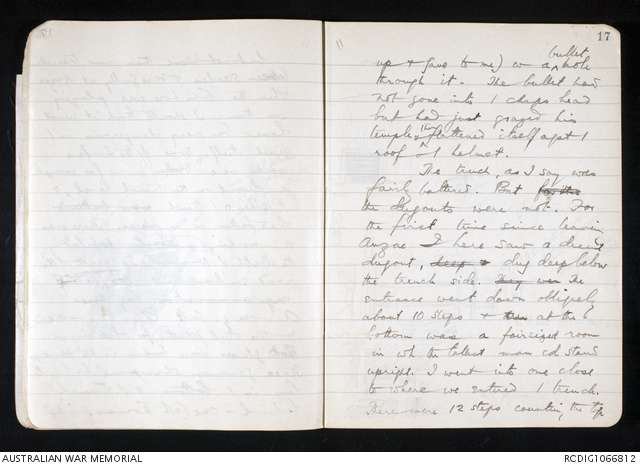 17
up & gave to me) w a bullet hole
through it. The bullet had
not gone into 1 chaps head
but had just grazed his
temple, then flattened itself agst 1
roof of 1 helmet.
The trench, as I say was
fairly battered. But for the
the dugouts were not. For
the first time since leaving
Anzac I here saw a decent
dugout, deep & dug deep below
the trench side. They were The
entrance went down obliquely
about 10 steps & then at the
bottom was a fairsized room
in wh the tallest man cd stand
upright. I went into one close
to where we entered 1 trench.
There were 12 steps counting the top
AUSTRALIAN WAR MEMORIAL
RCDIG1066812